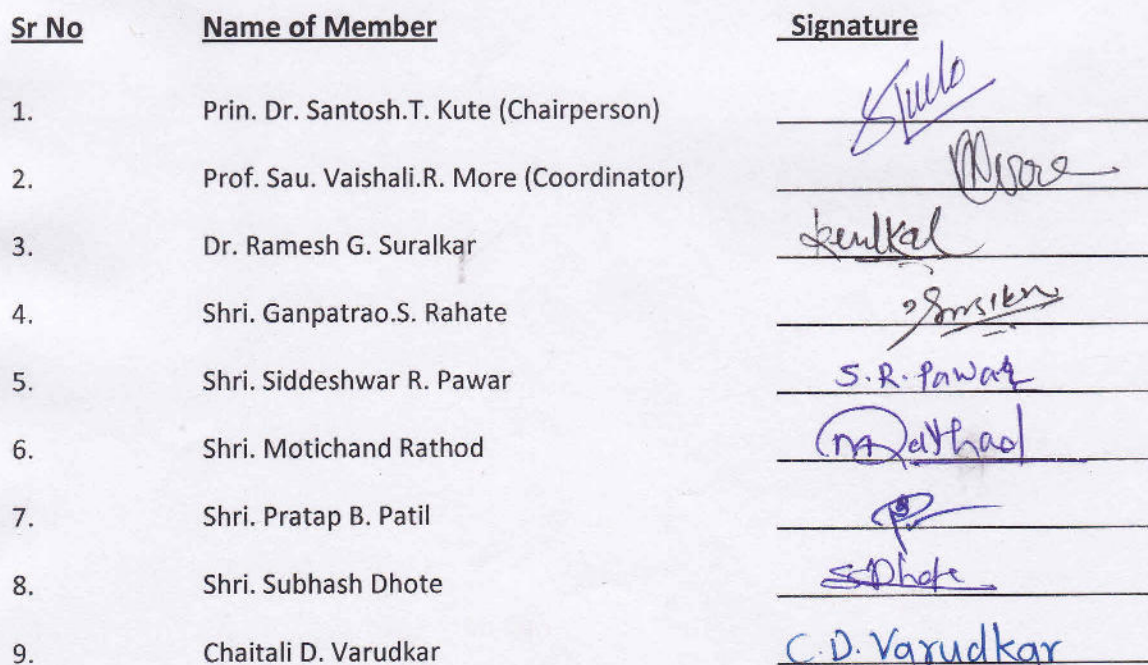 Sr No Name of Member Signature
1. Prin. Dr. Santosh.T. Kute (Chairperson)
2. Prof. Sau. Vaishali.R. More (Coordinator) More
3. Dr. Ramesh G. Suralkar
4. Shri. Ganpatrao.S. Rahate
5. Shri. Siddeshwar R. Pawar S.R. Pawar
6. Shri. Motichand Rathod Rathod
7. Shri. Pratap B. Patil
8. Shri. Subhash Dhote SDhote
9. Chaitali D. Varudkar C.D. Varudkar